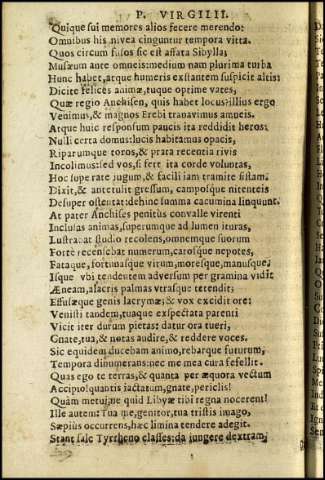 P. VIRGILII.
Quique sui memores alios fecere merendo:
Omnibus his nivea cinguntur tempora vitta.
Quos circum fusos sic est affata Sibylla;
Musæum ante omneis: medium nam plurima turba
Hunc habet, atque humeris exstantem suspicit altis:
Dicite felices animæ, tuque optime vates,
Quæ regio Anchisen, quis habet locus? illius ergo
Venimus, & magnos Erebi tranavimus amneis.
Atque huic responsum paucis ita reddidit heros:
Nulli certa domus: lucis habitamus opacis,
Riparumque toros, & prata recentia rivis
Incolimus: sed vos, si fert ita corde voluntas,
Hoc superate jugum, & facili iam tramite sistam.
Dixit, & ante tulit gressum, camposque nitenteis
Desuper ostentat: dehinc summa cacumina linquunt.
At pater Anchises penitus convalle virenti
Inclusas animas, superumque ad lumen ituras,
Lustrabat studio recolens, omnemque suorum
Forte recensebat numerum, carosque nepotes,
Fataque, fortunasque virum, moresque, manusque.
Isque ubi tendentem adversum per gramina vidit
Æneam, alacris palmas utrasque tetendit;
Effusæque genis lacrymæ; & vox excidit ore:
Venisti tandem, tuaque exspectata parenti
Vicit iter durum pietas? datur ora tueri,
Gnate, tua, & notas audire, & reddere voces.
Sic equidem ducebam animo, rebarque futurum,
Tempora dinumerans: nec me mea cura fefellit.
Quas ego te terras, & quanta per æquora vectum
Accipio! quantis iactatum, gnate, periclis!
Quàm metui, ne quid Libyæ tibi regna nocerent!
Ille autem: Tua me, genitor, tua tristis imago,
Sæpius occurrens, hæc limina tendere adegit.
Stant sale Tyrrheno classes: da jungere dextram;